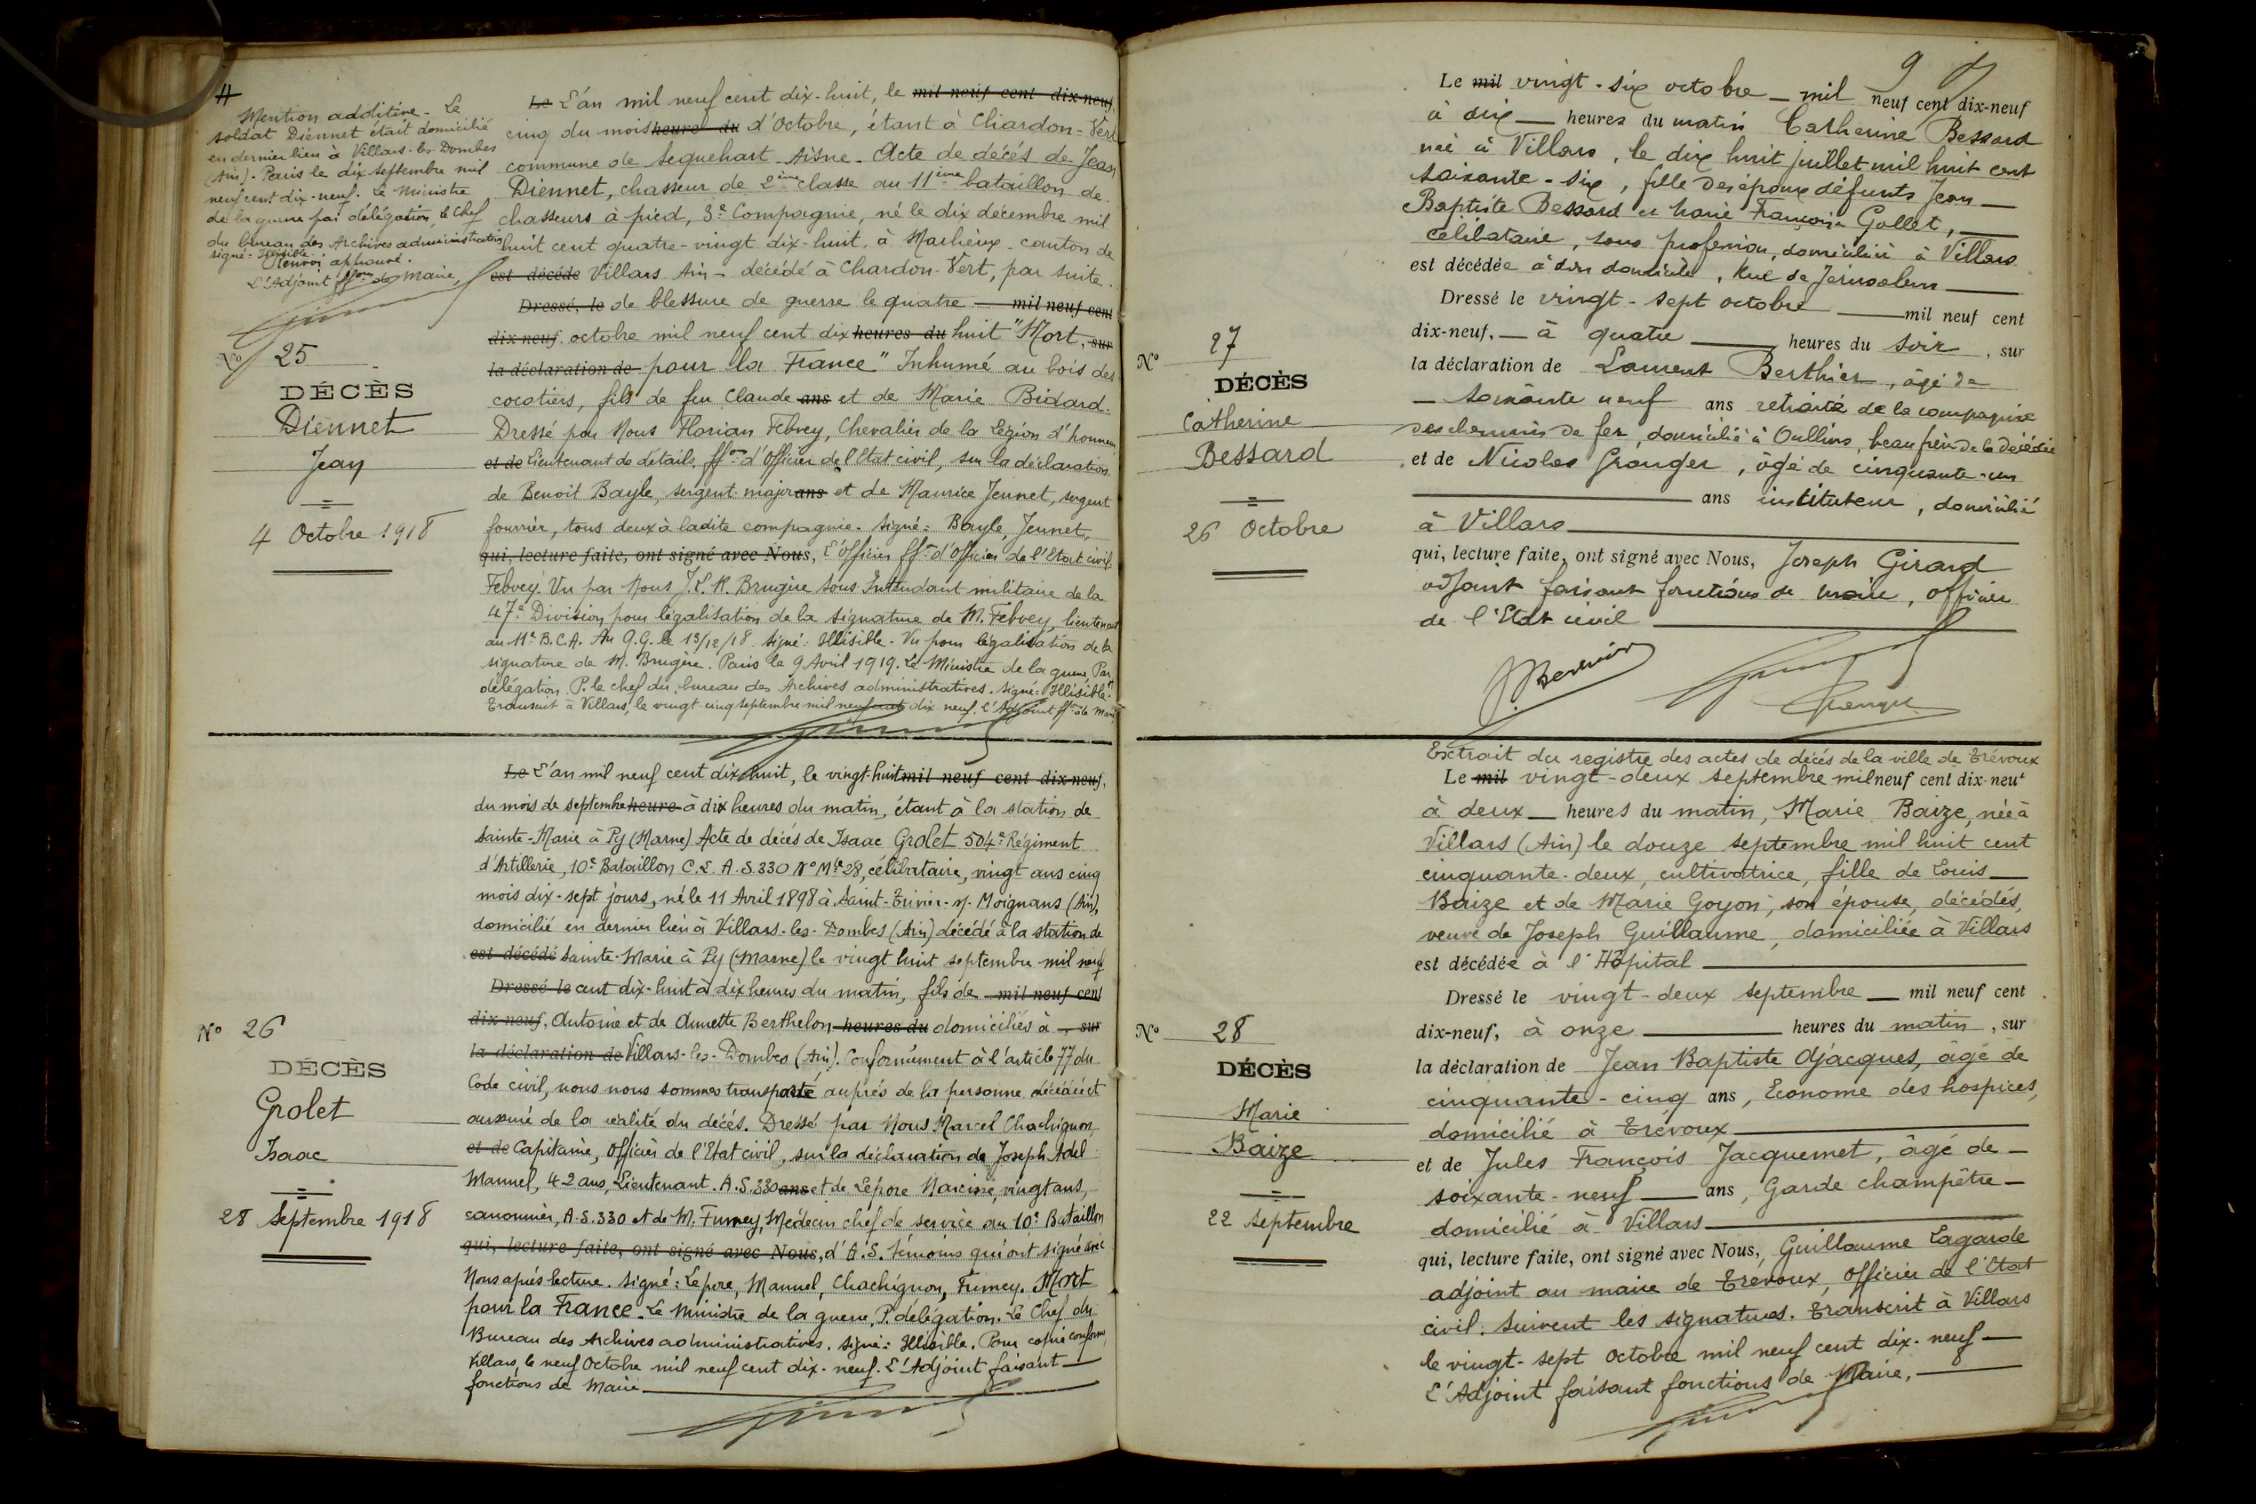 #
Mention additive - Le
soldat Diennet était domicilié
en dernier lieu à Villars-les-Dombes
(Ain). Paris le dix septembre mil
neuf cent dix-neuf. Le Ministre
de la guerre par délégation, le Chef
du bureau des Archives administratives
signé: Illisible.
Renvoi approuvé.
L'Adjoint ffons de Maire,
No 25
DÉCÈS
Diennet
Jean
4 Octobre 1918
Le L'an mil neuf cent dix-huit, le mil neuf cent dix-neuf
cinq du mois heure du d'Octobre, étant à Chardon-Vert
commune de Sequehart - Aisne - Acte de décés de Jean
Diennet, chasseur de 2ème classe au 11ème bataillon de
chasseurs à pied, 3e Compagnie, né le dix décembre mil
huit cent quatre-vingt dix-huit, à Marlieux - canton de
est décédé Villars Ain - décédé à Chardon-Vert, par suite
Dressé, le de blessure de guerre le quatre mil neuf cent
dix-neuf. octobre mil neuf cent dix heures du huit "Mort, sur
la déclaration de pour la France" Inhumé au bois des
cocotiers, fils de feu Claude ans et de Marie Bidard.
Dressé par Nous Florian Febvey, Chevalier de la Légion d'honneur
et de Lieutenant de détails, ffons d'Officier de l'Etat civil, sur la déclaration
de Benoit Bayle, sergent-major ans et de Maurice Jeunet, sergent
fourrier, tous deux à ladite compagnie. Signé: Bayle, Jeunet,
qui, lecture faite, ont signé avec Nous, L'Officier ffons d'Officier de l'Etat civil
Febvey. Vu par Nous J.L.H. Brugère Sous Intendant militaire de la
47e Division pour légalisation de la signature de M. Febvey, lieutenant
au 11e B.C.A. Au Q.G. le 13/12/18. signé: Illisible. Vu pour légalisation de la
signature de M. Brugère. Paris le 9 Avril 1919. Le Ministre de la guerre, Par
délégation P. le chef du bureau des Archives administratives. signé: Illisible."
Transcrit à Villars, le vingt-cinq septembre mil neuf cent dix neuf. L'Adjoint ffons de Maire
No 26
DÉCÈS
Grolet
Isaac
28 Septembre 1918
Le L'an mil neuf cent dix huit, le vingt-huit mil neuf cent dix-neuf,
du mois de septembre heure à dix heures du matin, étant à la station de
Sainte-Marie à Py (Marne) Acte de décés de Isaac Grolet 504e Régiment
d'Artillerie, 10e Bataillon C.L. A.S.330 No Mle 28, célibataire, vingt ans cinq
mois dix-sept jours, né le 11 Avril 1898 à Saint-Trivier-s/-Moignans (Ain),
domicilié en dernier lieu à Villars-les-Dombes (Ain) décédé à la station de
est décédé Sainte-Marie à Py (Marne) le vingt huit septembre mil neuf
Dressé le cent dix-huit à dix heures du matin, fils de mil neuf cent
dix-neuf, Antoine et de Annette Berthelon heures du domiciliés à , sur
la déclaration de Villars-les-Dombes (Ain). Conformément à l'article 77 du
Code civil, nous nous sommes transporté auprès de la personne décédée et
assuré de la réalité du décés. Dressé par Nous Marcel Chachignon,
et de Capitaine, Officier de l'Etat civil, sur la déclaration de Joseph Adel
Mannel, 42 ans, Lieutenant. A.S.330 ans et de Lepore Narcisse, vingt ans,
canonnier, A.S.330 et de M. Fumey, Médecin chef de service au 10e Bataillon
qui, lecture faite, ont signé avec Nous, d'A.S. témoins qui ont signé avec
Nous après lecture. Signé: Lepore, Mannel, Chachignon, Fumey. Mort
pour la France. Le Ministre de la guerre, P. délégation. Le Chef du
Bureau des Archives administratives. Signé: Illisible. Pour copie conforme,
Villars, le neuf Octobre mil neuf cent dix-neuf. L'Adjoint faisant
fonctions de Maire
9
No 27
DÉCÈS
Catherine
Bessard
26 Octobre
Le mil vingt-six octobre - mil neuf cent dix-neuf
à dix heures du matin Catherine Bessard
née à Villars, le dix huit juillet mil huit cent
soixante-six, fille des époux défunts Jean
Baptiste Bessard et Marie Françoise Gollet,
célibataire, sans profession, domiciliée à Villars
est décédée à son domicile, Rue de Jérusalem
Dressé le vingt-sept octobre mil neuf cent
dix-neuf, à quatre heures du soir, sur
la déclaration de Laurent Berthier, âgé de
soixante neuf ans retraité de la compagnie
des chemins de fer, domicilié à Oullins, beau frère de la décédée
et de Nicolas Granger, âgé de cinquante-un
ans instituteur, domicilié
à Villars
qui, lecture faite, ont signé avec Nous, Joseph Girard
adjoint faisant fonctions de maire, officier
de l'Etat civil
Extrait du registre des actes de décés de la ville de Trévoux
No 28
DÉCÈS
Marie
Baize
22 septembre
Le mil vingt-deux septembre mil neuf cent dix-neuf
à deux heures du matin, Marie Baize, née à
Villars (Ain) le douze septembre mil huit cent
cinquante-deux, cultivatrice, fille de Louis
Baize et de Marie Goyon, son épouse, décédés,
veuve de Joseph Guillaume, domiciliée à Villars
est décédée à l'Hôpital
Dressé le vingt-deux septembre mil neuf cent
dix-neuf, à onze heures du matin, sur
la déclaration de Jean Baptiste Djacques, âgé de
cinquante-cinq ans, Econome des hospices,
domicilié à Trévoux
et de Jules François Jacquemet, âgé de
soixante-neuf ans, Garde champêtre
domicilié à Villars
qui, lecture faite, ont signé avec Nous, Guillaume Lagarde
adjoint au maire de Trévoux, Officier de l'Etat
civil. Suivent les signatures. Transcrit à Villars
le vingt-sept Octobre mil neuf cent dix-neuf
L'Adjoint faisant fonctions de Maire,